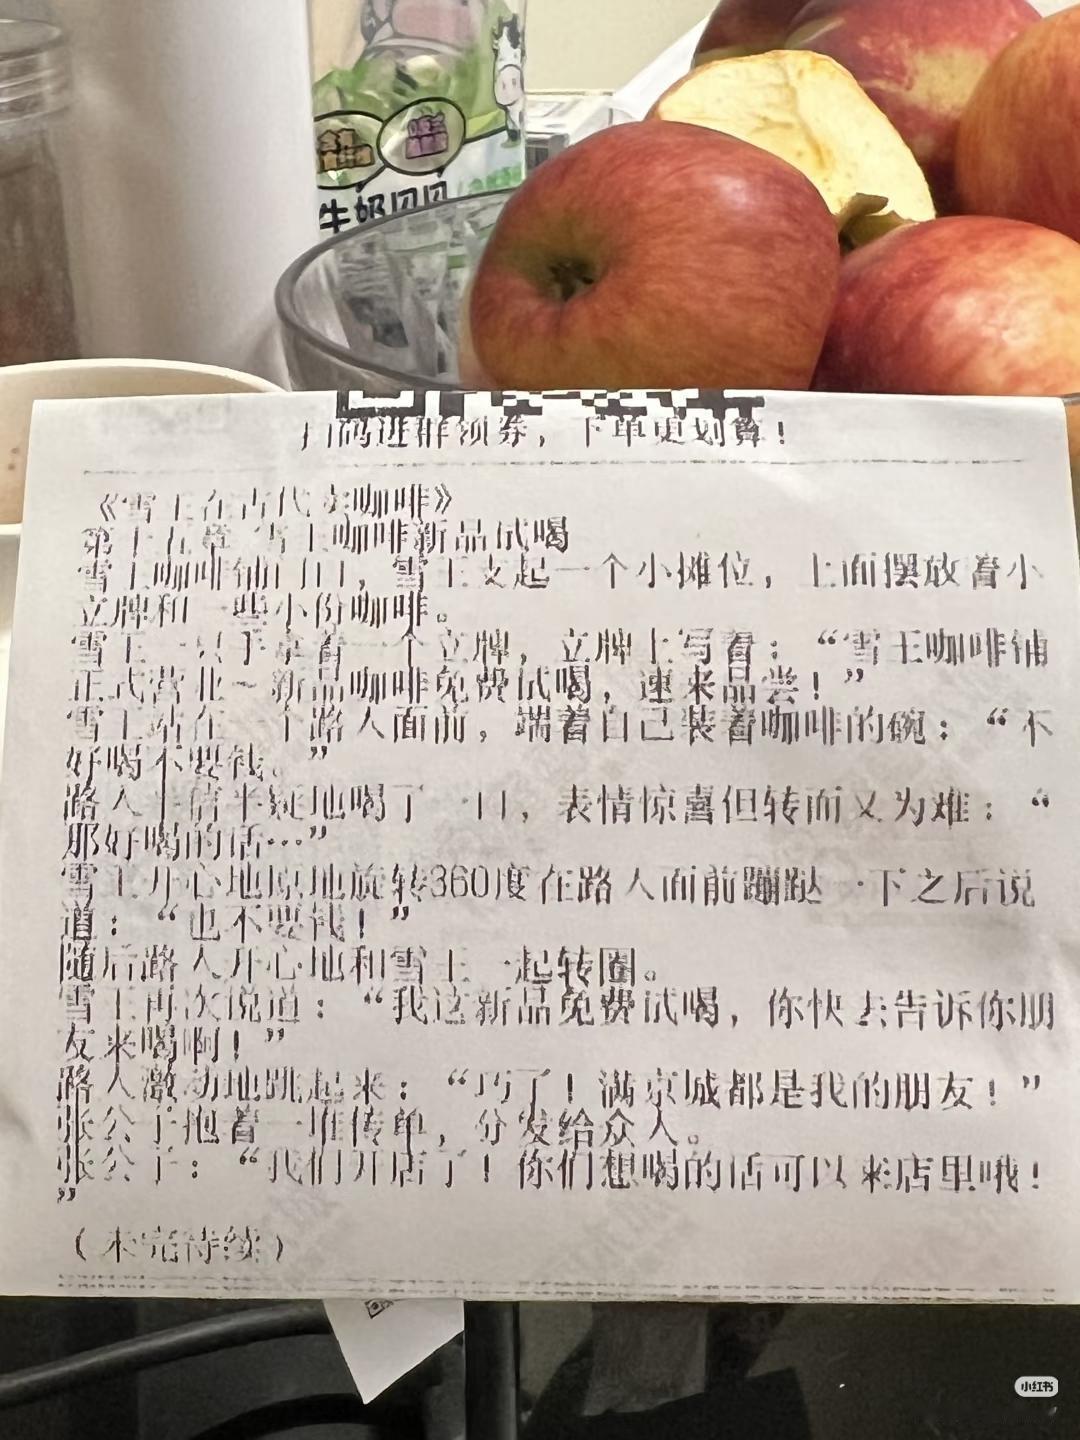 牛奶贝贝
扫码进群领券，下单更划算！
《雪王在古代卖咖啡》
第十五章 雪王咖啡新品试喝
雪王咖啡铺门口，雪王支起一个小摊位，上面摆放着小
立牌和一些小份咖啡。
雪王一只手拿着一个立牌，立牌上写着：“雪王咖啡铺
正式营业~新品咖啡免费试喝，速来品尝！”
雪王站在一个路人面前，端着自己装着咖啡的碗：“不
好喝不要钱。”
路人半信半疑地喝了一口，表情惊喜但转而又为难：“
那好喝的话…”
雪王开心地原地旋转360度在路人面前蹦跶一下之后说
道：“也不要钱！”
随后路人开心地和雪王一起转圈。
雪王再次说道：“我这新品免费试喝，你快去告诉你朋
友来喝啊！”
路人激动地跳起来：“巧了！满京城都是我的朋友！”
张公子抱着一堆传单，分发给众人。
张公子：“我们开店了！你们想喝的话可以来店里哦！
”
（未完待续）
小红书